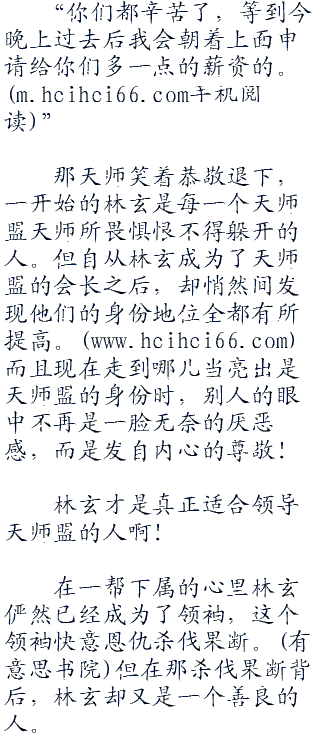 “你们都辛苦了，等到今
晚上过去后我会朝着上面申
请给你们多一点的薪资的。
(m.hcihci66.com手机阅
读)”
那天师笑着恭敬退下，
一开始的林玄是每一个天师
盟天师所畏惧恨不得躲开的
人。但自从林玄成为了天师
盟的会长之后，却悄然间发
现他们的身份地位全都有所
提高。(www.hcihci66.com)
而且现在走到哪儿当亮出是
天师盟的身份时，别人的眼
中不再是一脸无奈的厌恶
感，而是发自内心的尊敬！
林玄才是真正适合领导
天师盟的人啊！
在一帮下属的心里林玄
俨然已经成为了领袖，这个
领袖快意恩仇杀伐果断。(有
意思书院)但在那杀伐果断背
后，林玄却又是一个善良的
人。